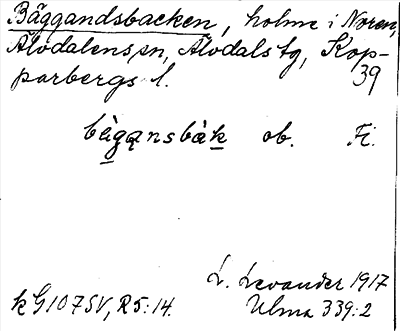 Bäggandsbacken, holme i Noren,
Älvdalens sn, Älvdals tg, Kop-
parbergs l. 39
bèggansbàk ob. Fi.
L. Levander 1917
k G 107 SV, R 5:14. Ulma 339:2